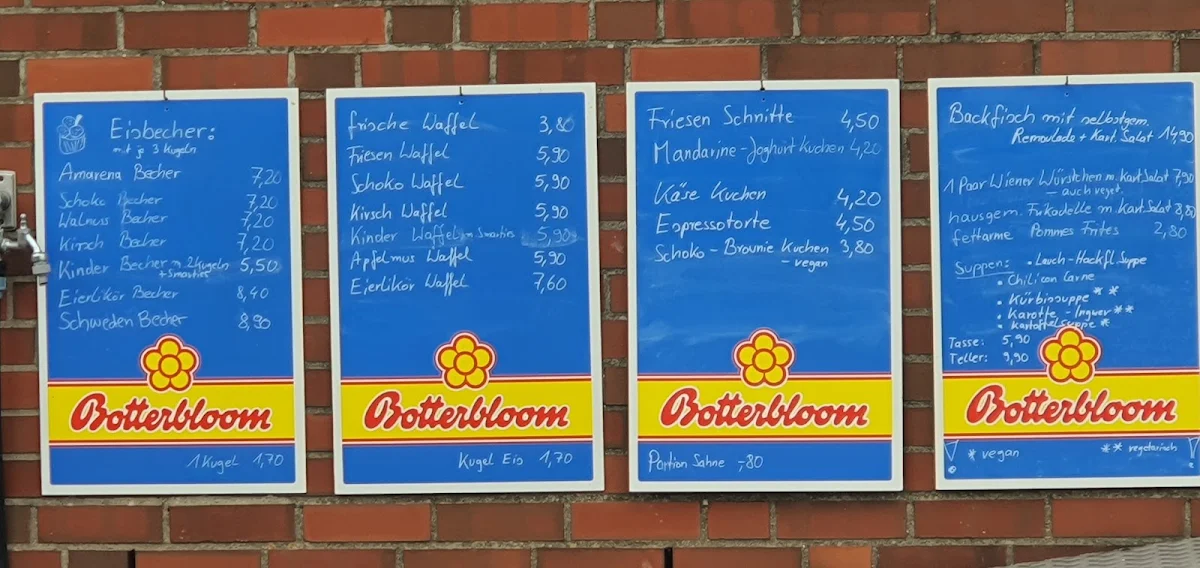 Eisbecher:
mit je 3 Kugeln
Amarena Becher 7,20
Schoko Becher 7,20
Walnuss Becher 7,20
Kirsch Becher 7,20
Kinder Becher m 2 Kugeln 5,50
+ Smarties
Eierlikör Becher 8,40
Schweden Becher 8,90
Botterbloom
1 Kugel 1,70
frische Waffel 3,80
Friesen Waffel 5,90
Schoko Waffel 5,90
Kirsch Waffel 5,90
Kinder Waffel m Smarties 5,90
Apfelmus Waffel 5,90
Eierlikör Waffel 7,60
Botterbloom
Kugel Eis 1,70
Friesen Schnitte 4,50
Mandarine-Joghurt Kuchen 4,20
Käse Kuchen 4,20
Espressotorte 4,50
Schoko-Brownie Kuchen 3,80
- vegan
Botterbloom
Portion Sahne -,80
Backfisch mit selbstgem.
Remoulade + Kart. Salat 14,90
1 Paar Wiener Würstchen m. Kart. Salat 7,90
- auch veget.
hausgem. Frikadelle m. Kart. Salat
fettarme Pommes Frites 2,80
Suppen: • Lauch-Hackfl. Suppe
• Chili con Carne
• Kürbissuppe **
• Karotte - Ingwer **
• Kartoffelsuppe *
Tasse: 5,90
Teller: 9,90
Botterbloom
* vegan ** vegetarisch